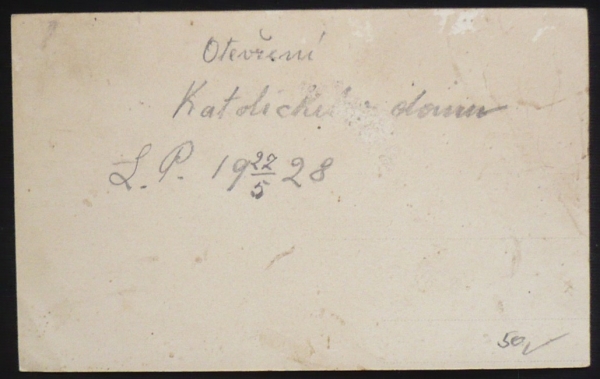 Otevření
Katolického domu
L. P. 19 27/5 28
50